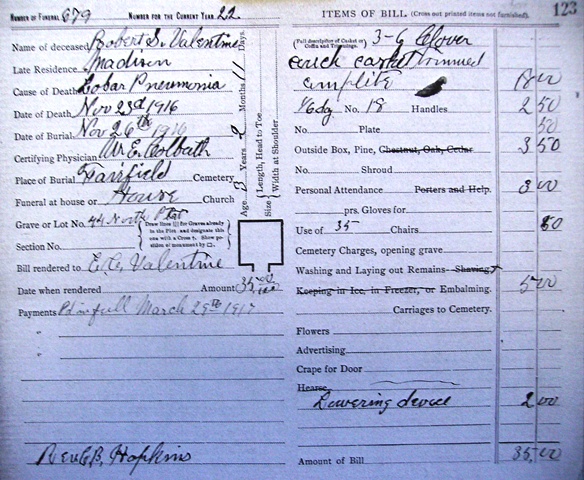 NUMBER OF FUNERAL 679 NUMBER FOR THE CURRENT YEAR 22
Name of deceased Robert S. Valentine
Late Residence Madison
Cause of Death Lobar Pneumonia
Date of Death Nov 23d 1916
Date of Burial Nov 26th 1916
Certifying Physician Wm E. Colbath
Place of Burial Fairfield Cemetery
Funeral at house or House Church
Grave or Lot No. 44 North
Draw lines for Graves already in the Plot and designate this one with a Cross †. Show position of monument by □.
Section No.
Bill rendered to E. C. Valentine
Date when rendered Amount 35.00
Payments Pd in full March 29th 1917
Rev. C. B. Hopkins
Age 3 Years 2 Months 11 Days.
Size Length, Head to Toe.
Width at Shoulder
123
ITEMS OF BILL (Cross out printed items not furnished).
(Full description of Casket or Coffin and Trimmings. 3-6 Clover
casket trimmed
complete 18 00
½ dg. No. 18 Handles 2 50
No. Plate 50
Outside Box, Pine, Chestnut, Oak, Cedar 3 50
No. Shroud
Personal Attendance Porters and Help. 3 00
prs. Gloves for
Use of 35 Chairs 50
Cemetery Charges, opening grave
Washing and Laying out Remains Shaving
Keeping in Ice, in Freezer, or Embalming. 5 00
Carriages to Cemetery.
Flowers
Advertising
Crape for Door
Hearse
Lowering device 2 00
Amount of Bill 35.00